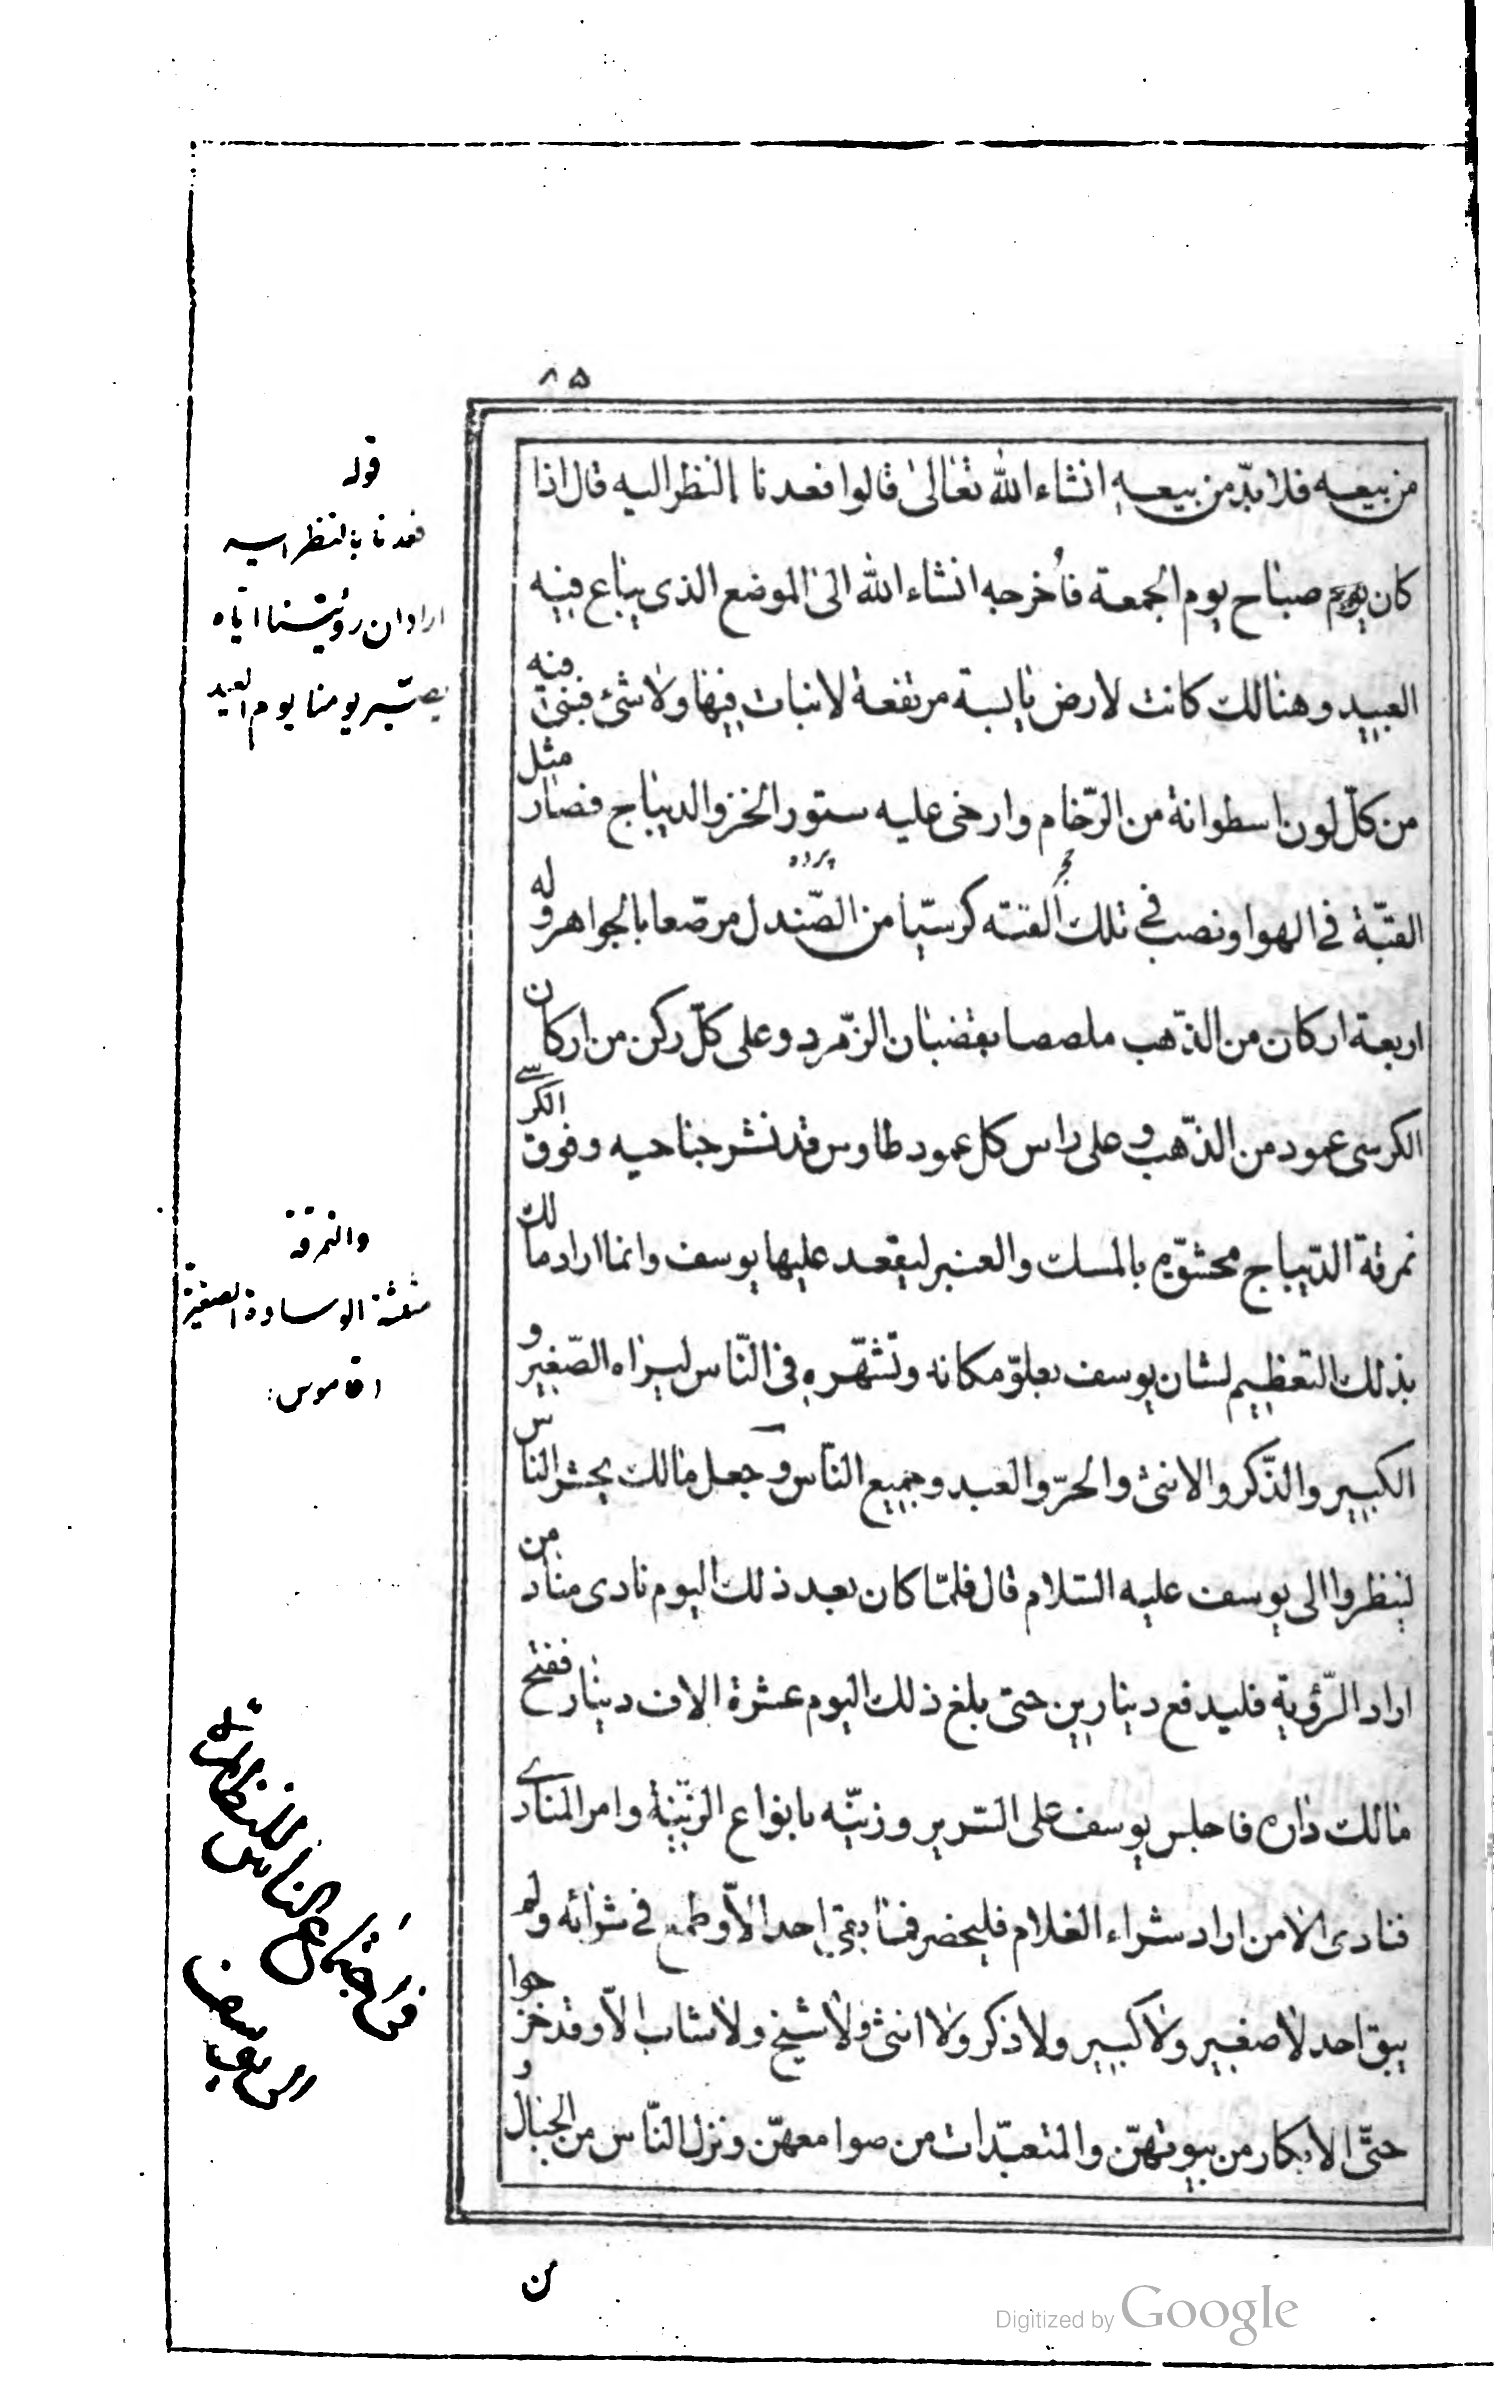 ۸۵
من بيعه فلا بدّ من بيعه انشاء الله تعالى قالوا فعدنا النظر اليه قال اذا
كان يوم صباح يوم الجمعة فأخرجه انشاء الله الى الموضع الذى يباع فيه
العبيد وهنالك كانت لارض يابسة مرتفعة لا نبات فيها ولا شئ فبنى فيه
من كلّ لون اسطوانة من الرّخام وارخى عليه ستور الخز والديباج فصار مثل
پرده
القبّة فى الهوا ونصب فى تلك القبّه كرسيّا من الصّندل مرصّعا بالجواهر وله
اربعة اركان من الذّهب ملصصا بقضبان الزّمرد وعلى كلّ ركن من اركان
الكرسى عمود من الذّهب وعلى راس كل عمود طاوس قد نشر جناحيه وفوق الكرسى
نمرقة الدّيباج محشوّه بالمسك والعنبر ليقعد عليها يوسف وانما اراد مالك
بذلك التعظيم لشان يوسف بعلوّ مكانه وتشهّره فى النّاس ليراه الصّغير و
الكبير والذّكر والانثى والحرّ والعبد وجميع النّاس وجعل مالك يحشر الناس
لينظروا الى يوسف عليه السّلام قال فلمّا كان بعد ذلك اليوم نادى مناد من
اراد الرّؤية فليدفع دينارين حتى بلغ ذلك اليوم عشرة الاف دينار ففتح
مالك داره فاجلس يوسف على السّرير وزيّنه بانواع الزيّنة وامر المنادى
فنادى الا من اراد شراء الغلام فليحضر فما بقى احد الاّ وطمع فى شرائه ولم
يبق احد لا صغير ولا كبير ولا ذكر ولا انثى ولا شيخ ولا شاب الاّ وقد خرجوا
حتّى الابكار من بيوتهنّ والمتعبّدات من صوامعهنّ ونزل النّاس من الجبال و
من
قوله
فعدنا بالنظر اليه
اراد ان رؤيتنا اياه
يصير يومنا يوم العيد
والنمرقة
مثلثة الوسادة الصغيرة
قاموس
الناس للنظارة
الى يوسف
Digitized by Google